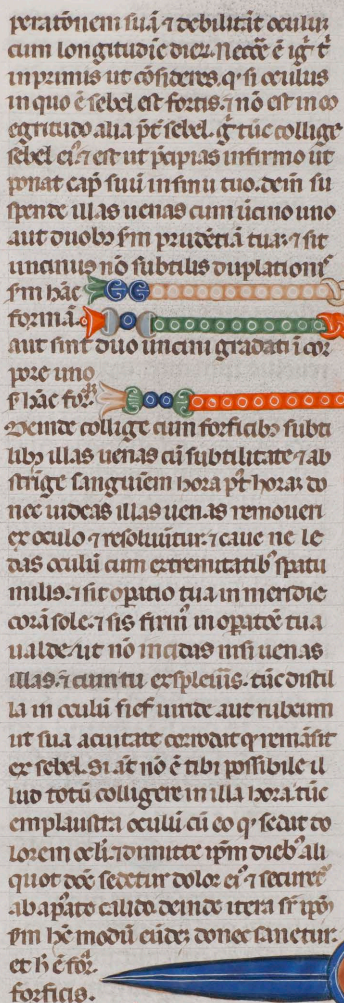 perationem suā ⁊ debilitat̄ oculū
cum longitudīe dieꝝ. Necc̄e ē igr̄ t̄
in primis ut cōsideres. ꝙ si oculus
in quo ē sebel est fortis. ⁊ nō est in eo
egritudo alia p̄t sebel. g̊ tūc collige
sebel ei᷒ ⁊ est ut p̄cipias infirmo ut
ponat cap̄ suū in sinu tuo. dein̄ su
spende illas uenas cum ūcino uno
aut duobꝫ s̄m prudētiā tuaꝫ. ⁊ sit
uncinus nō subtilis duplationis
s̄m hāc
formā.
aut sint duo ūncini gradati ī cor
pore uno
s̄ hāc for̄.
Deinde collige cum forficibꝫ subti
libꝫ illas uenas cū subtilitate ⁊ ab
strīge sanguīem hora p̄t horaꝫ do
nec uideas illas uenas remoueri
ex oculo ⁊ resoluūtur. ⁊ caue ne le
das oculū cum extremitatibꝰ spatu
milis. ⁊ sit opatio tua in meridie
corā sole. ⁊ sis firm᷒ in opatōe tua
ualde. ut nō incidas nisi uenas
illas. ⁊ cum tu expleiūs. tūc distil
la in oculū sief uiride aut rubeum
ut sua acuitate corrodat ꝙ remāsit
ex sebel. Si at̄ nō ē tibi possibile il
lud totū colligere in illa hora. tūc
emplaustra oculū cū eo ꝙ sedat do
lorem ocli. ⁊ dimitte ip̄m diebꝰ ali
quot
donec sanetur.
et h̄ ē for̄.
forficis.